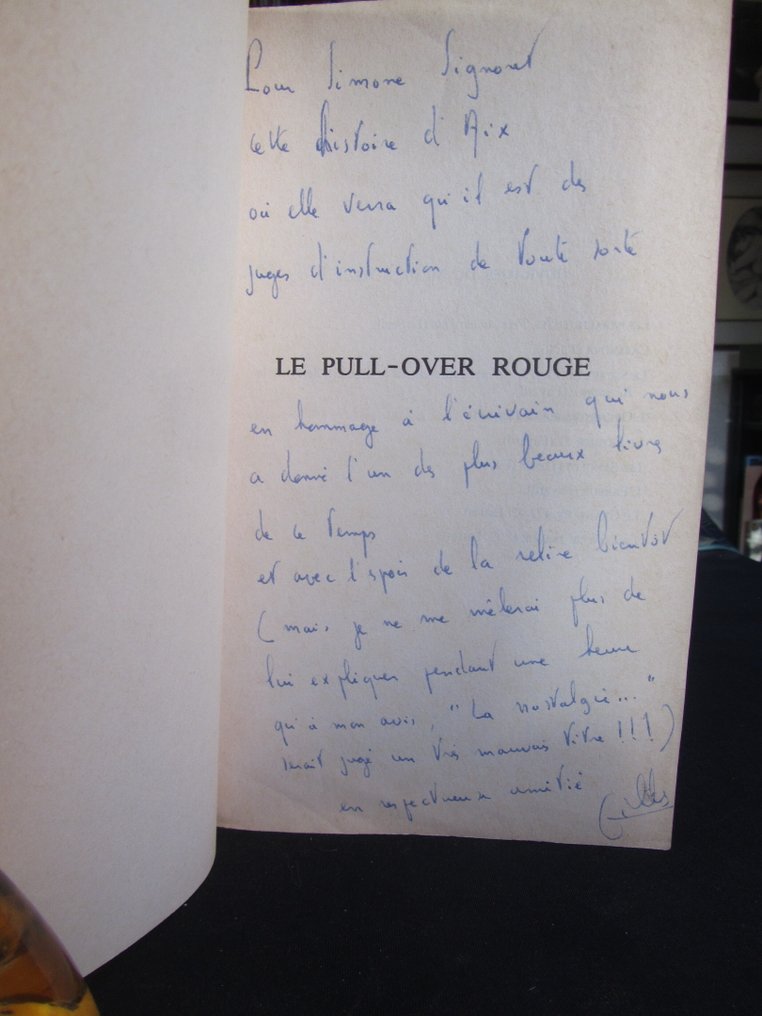 Pour Simone Signoret
cette histoire d'Aix
où elle verra qu'il est des
juges d'instruction de toute sorte
LE PULL-OVER ROUGE
en hommage à l'écrivain qui nous
a donné l'un des plus beaux livres
de ce temps
et avec l'espoir de la relire bientôt
(mais je ne me mêlerai plus de
lui expliquer pendant une heure
qu'à mon avis, "La nostalgie..."
serait jugé un très mauvais titre !!!)
en respectueuse amitié
Gilles